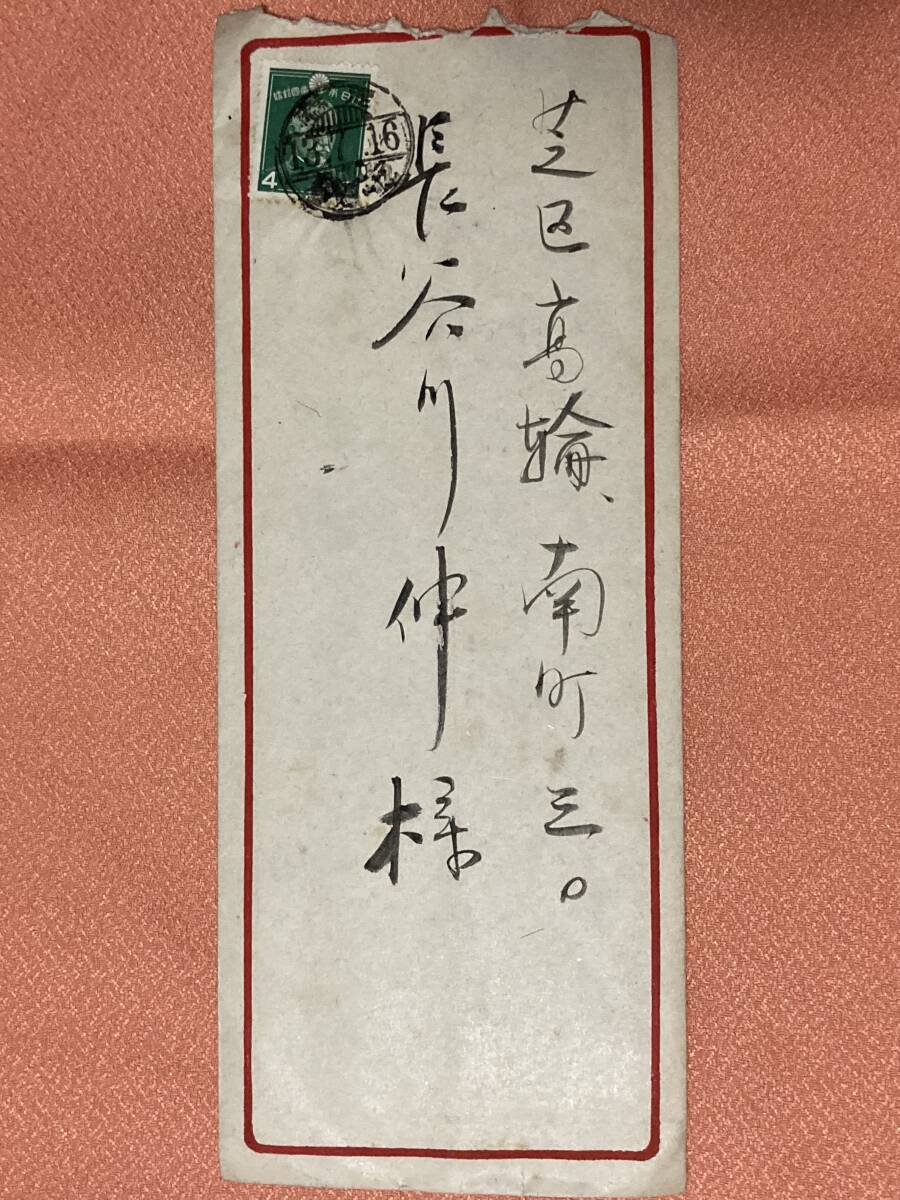 芝区高輪南町三〇
長谷川伸様
大日本帝国郵便
4
13.7.16